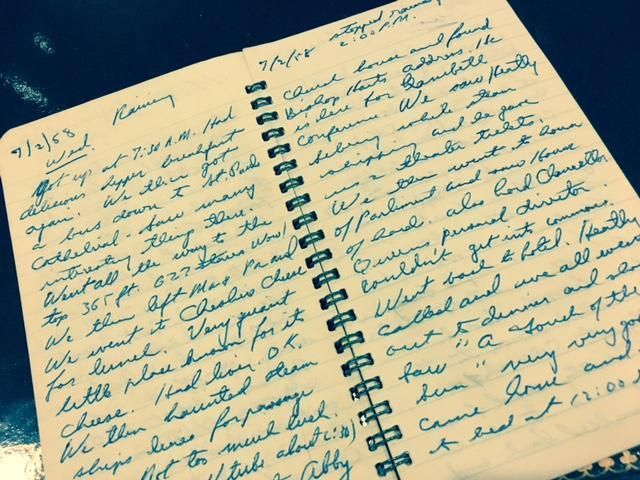 7/2/58 Raining
Wed.
Got up at 7:30 A.M. Had
delicious kipper breakfast
again. We then got
a bus down to St. Pauls
Cathedral - Saw many
interesting things there.
Went all the way to the
top 365 ft. 627 stairs Wow!
We then left Max
We went to Cheshire Cheese
for lunch. Very quaint
little place known for its
cheese. Had liver. O.K.
We then hounted steam
ships lines for passage
Not too much luck.
tube about 2:30
Abby
7/2/58 stopped raining
2:00 P.M.
Church house and found
Bishop Harts address. He
is here for Lambeth
Conference. We saw Heathly
Selvey while steam
shipping and he gave
us 2 theater tickets.
We then went to house
of Parliment and saw House
of Lords. Also Lord Chancellor
Queens personal director.
Couldn't get into commons.
Went back to hotel. Heathly
called and we all went
out to dinner and also
saw "A Touch of the
Sun" very very good
came home and
to bed at 12:00